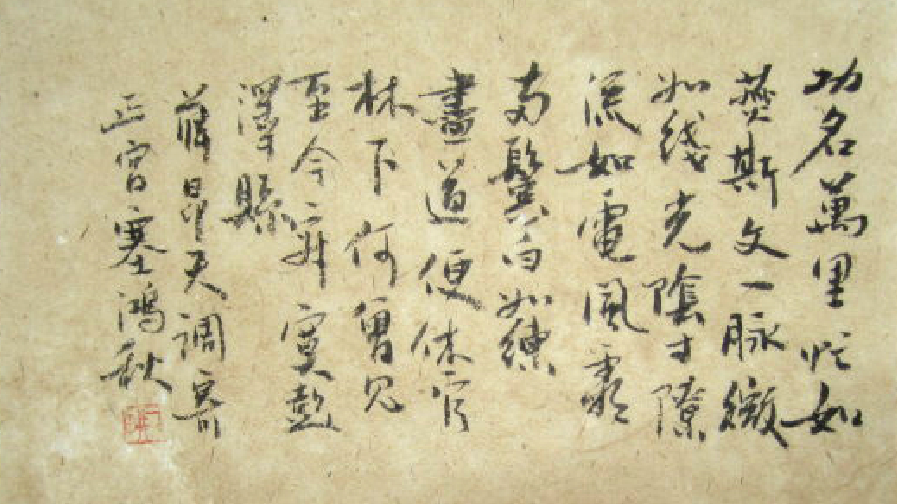 功名萬里忙如
燕斯文一脉微
如綫光陰寸隙
流如電風霜
兩鬢白如練
盡道便休官
林下何曾見
至今寂寞彭
澤縣
薛昂夫調寄
正宮塞鴻秋